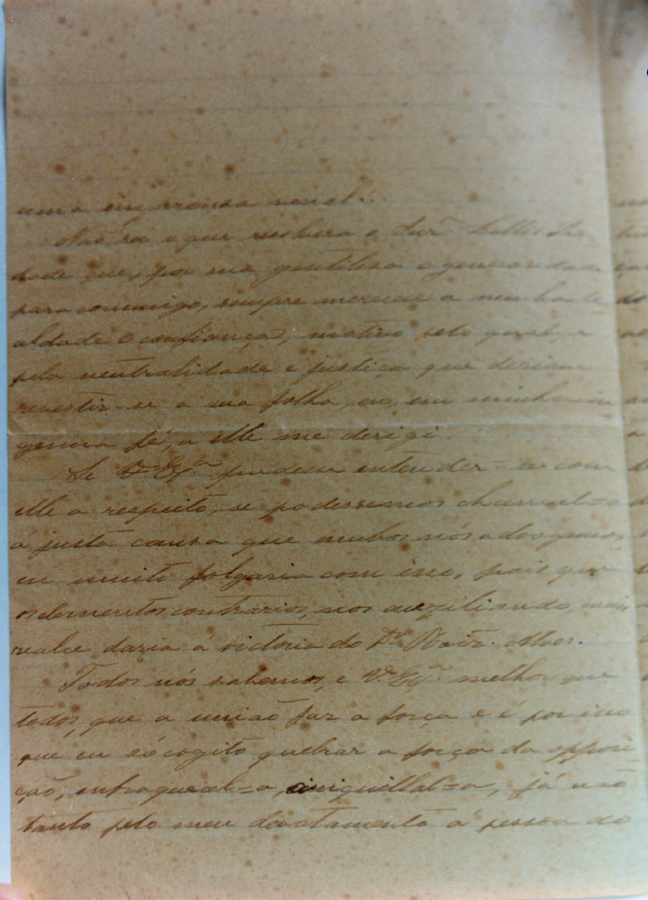 uma imprensa venal!..
Não era o que recebera o Snr.
dade que, por sua gentileza e generosidade
para commigo, sempre mereceu a minha le-
aldade e confiança, motivo pelo qual, e
pela neutralidade e justiça que deviam
revestir-se a sua folha, eu, em minha in-
genua fé, a elle me derigi.
Se V. Exª. pudesse entender-se com
elle a respeito, se podessemos chamal-o a
á justa causa que ambos nós advogamos,
eu muito folgaria com isso, pois que
os elementos contrarios, nos auxiliando, mais
realce daria á victoria do Dr. Alves.
Todos nós sabemos, e V. Exª. melhor que
todos, que a união faz a força e é por isso
que eu só cogito quebrar a força da opposi-
ção, enfraquecel-a, aniquillal-a, já não
tanto pelo meu devotamento á pessoa do